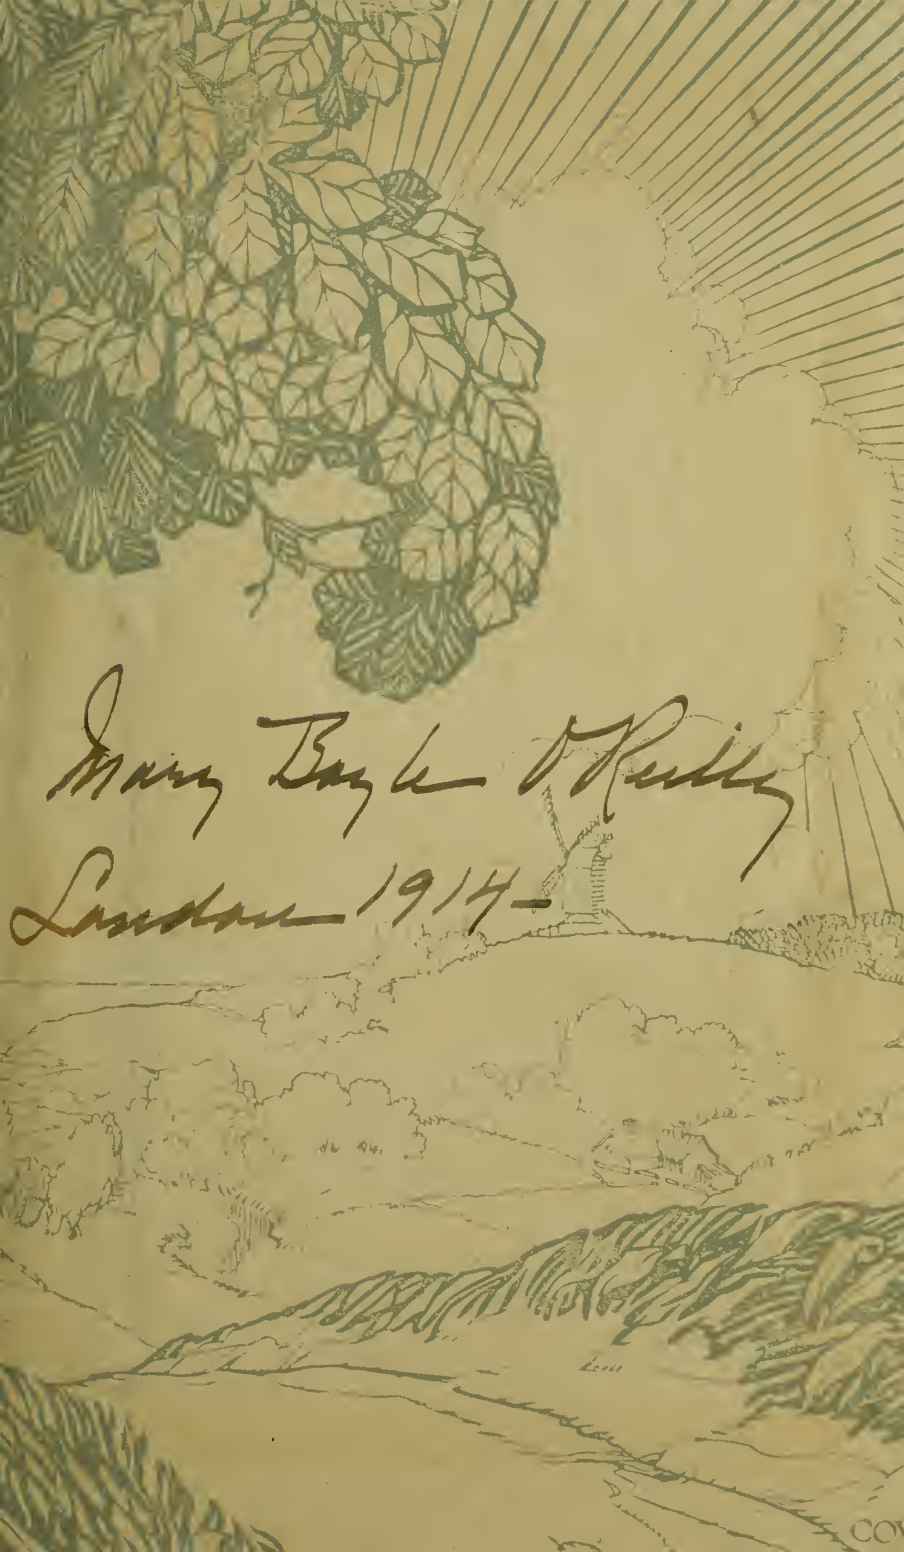 Mary Boyle O'Reilly
London 1914-